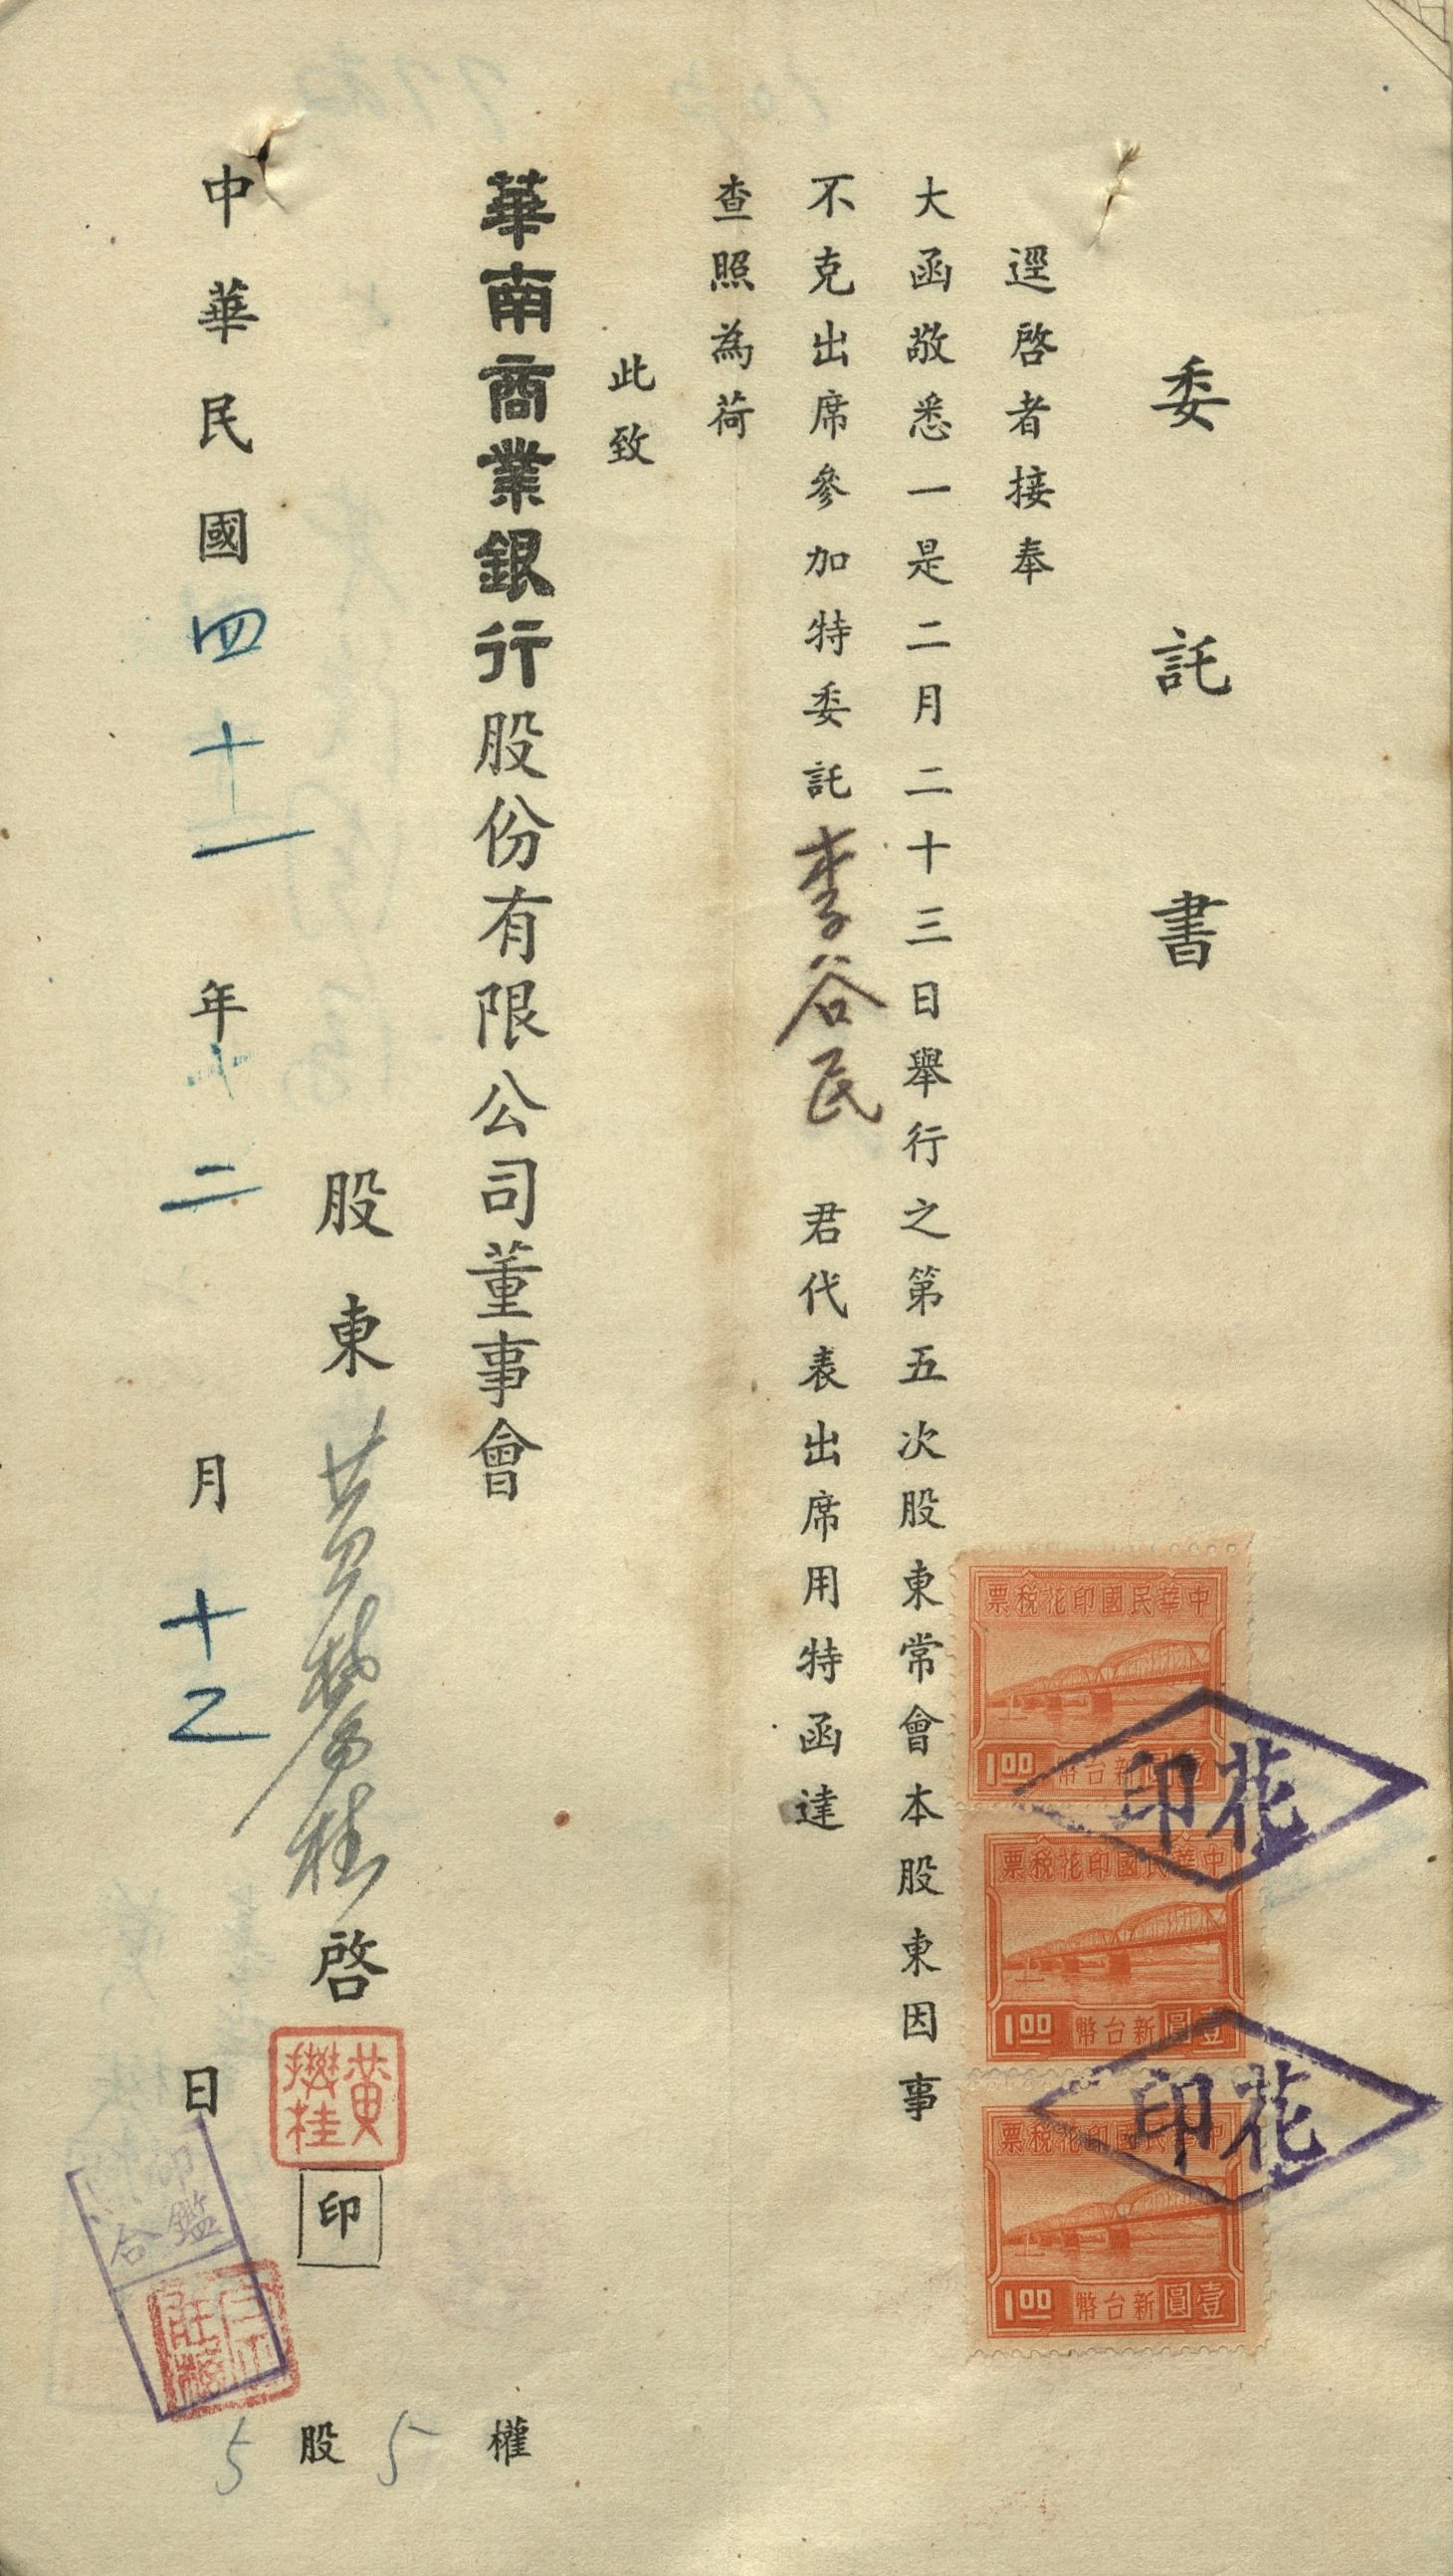 委託書
逕啓者接奉
大函敬悉一是二月二十三日舉行之第五次股東常會本股東因事
不克出席參加特委託李谷民君代表出席用特函達
查照為荷
此致
華南商業銀行股份有限公司董事會
股東黃攀桂啓
黃攀桂
印
中華民國四十一年二月十乙日
5股5權
印鑑
合
中華民國印花稅票
壹圓新台幣
1.00
中華民國印花稅票
壹圓新台幣
1.00
中華民國印花稅票
壹圓新台幣
1.00
印花
印花